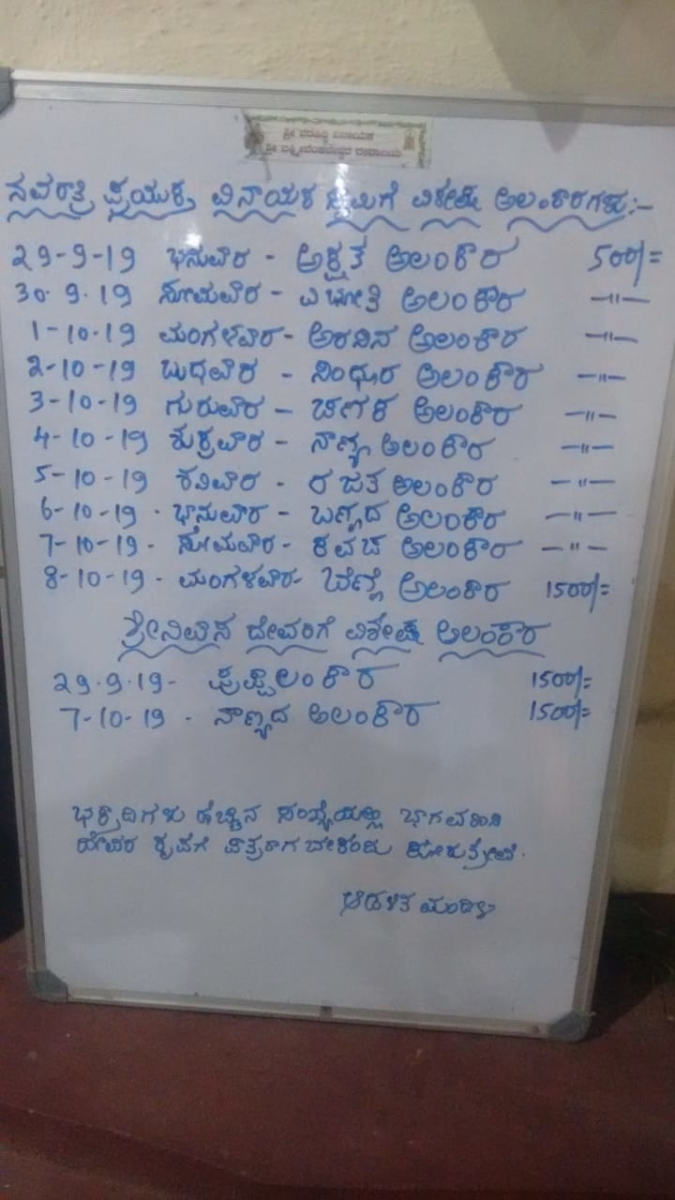 ಶ್ರೀ ವರಸಿದ್ಧಿ ವಿನಾಯಕ
ಶ್ರೀ ಲಕ್ಷ್ಮೀವೆಂಕಟೇಶ್ವರ ದೇವಾಲಯ
ನವರಾತ್ರಿ ಪ್ರಯುಕ್ತ ವಿನಾಯಕ ಸ್ವಾಮಿಗೆ ವಿಶೇಷ ಅಲಂಕಾರಗಳು:-
29-9-19 ಭಾನುವಾರ - ಅಕ್ಷತ ಅಲಂಕಾರ 500/=
30.9.19 ಸೋಮವಾರ - ವಿಭೂತಿ ಅಲಂಕಾರ -"-
1-10-19 ಮಂಗಳವಾರ - ಅರಿಶಿನ ಅಲಂಕಾರ -"-
2-10-19 ಬುಧವಾರ - ಸಿಂಧೂರ ಅಲಂಕಾರ -"-
3-10-19 ಗುರುವಾರ - ಅಲಂಕಾರ -"-
4-10-19 ಶುಕ್ರವಾರ - ನಾಣ್ಯ ಅಲಂಕಾರ -"-
5-10-19 ಶನಿವಾರ - ರಜತ ಅಲಂಕಾರ -"-
6-10-19 - ಭಾನುವಾರ - ಬಣ್ಣದ ಅಲಂಕಾರ -"-
7-10-19 - ಸೋಮವಾರ - ಕವಚ ಅಲಂಕಾರ -"-
8-10-19 - ಮಂಗಳವಾರ - ಬೆಣ್ಣೆ ಅಲಂಕಾರ 1500/=
ಶ್ರೀನಿವಾಸ ದೇವರಿಗೆ ವಿಶೇಷ ಅಲಂಕಾರ
29.9.19 - ಪುಷ್ಪಾಲಂಕಾರ 1500/=
7-10-19 - ನಾಣ್ಯದ ಅಲಂಕಾರ 1500/=
ಭಕ್ತಾದಿಗಳು ಹೆಚ್ಚಿನ ಸಂಖ್ಯೆಯಲ್ಲಿ ಭಾಗವಹಿಸಿ
ದೇವರ ಕೃಪೆಗೆ ಪಾತ್ರರಾಗ ಬೇಕೆಂದು ಕೋರುತ್ತೇವೆ.
ಆಡಳಿತ ಮಂಡಳಿ